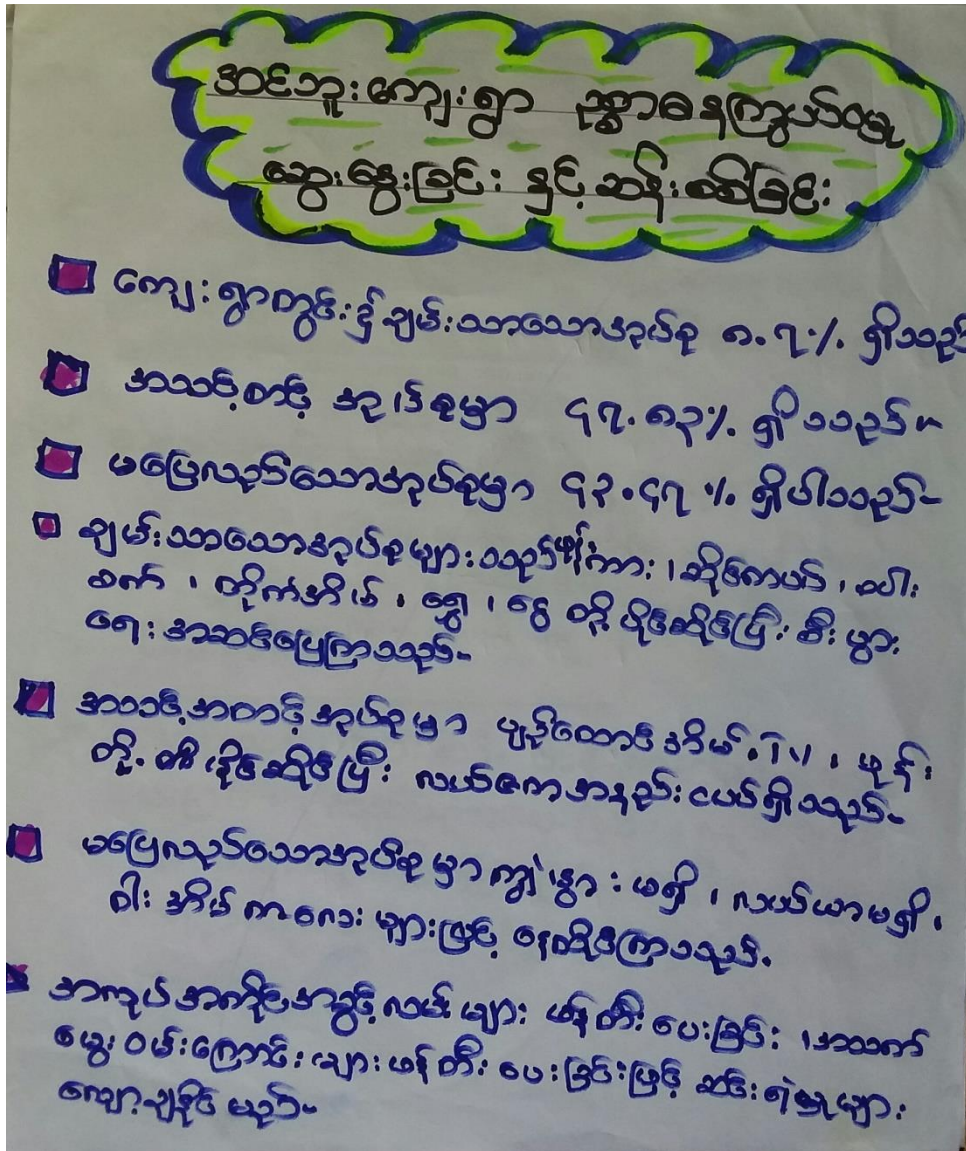 အင်ဘူးကျေးရွာ ဥစ္စာဓနကြွယ်ဝမှု
ဆွေးနွေးခြင်း နှင့် ဆန်းစစ်ခြင်း
ကျေးရွာတွင်း၌ ချမ်းသာသောအုပ်စု ၈.၇% ရှိသည်
အသင့်တင့် အုပ်စုမှာ ၄၇.၈၃% ရှိသည်။
မပြေလည်သောအုပ်စုမှာ ၄၃.၄၇% ရှိပါသည်-
ချမ်းသာသောအုပ်စုများသည် ကား၊ ဆိုင်ကယ်၊ ထွန်
စက်၊ တိုက်အိမ်၊ ရွှေ၊ ငွေ တို့ ပိုင်ဆိုင်ပြီး စီးပွား
ရေး အဆင်ပြေကြသည်-
အသင့်အတင့်အုပ်စုမှာ ပျဉ်ထောင်အိမ်၊ TV ၊ ဖုန်း
တို့ ပိုင်ဆိုင်ပြီး လယ်ဧကအနည်းငယ်ရှိသည်-
မပြေလည်သောအုပ်စုမှာ ကျွဲ၊ နွား မရှိ၊ လယ်ယာမရှိ၊
ဝါးအိမ်ကလေးများဖြင့် နေထိုင်ကြသည်.
အလုပ်အကိုင်အခွင့်လမ်းများ ဖန်တီးပေးခြင်း ၊အသက်
မွေးဝမ်းကြောင်းများ ဖန်တီးပေးခြင်းဖြင့် ဆင်းရဲမှုများ
လျော့ချနိုင်မည်-